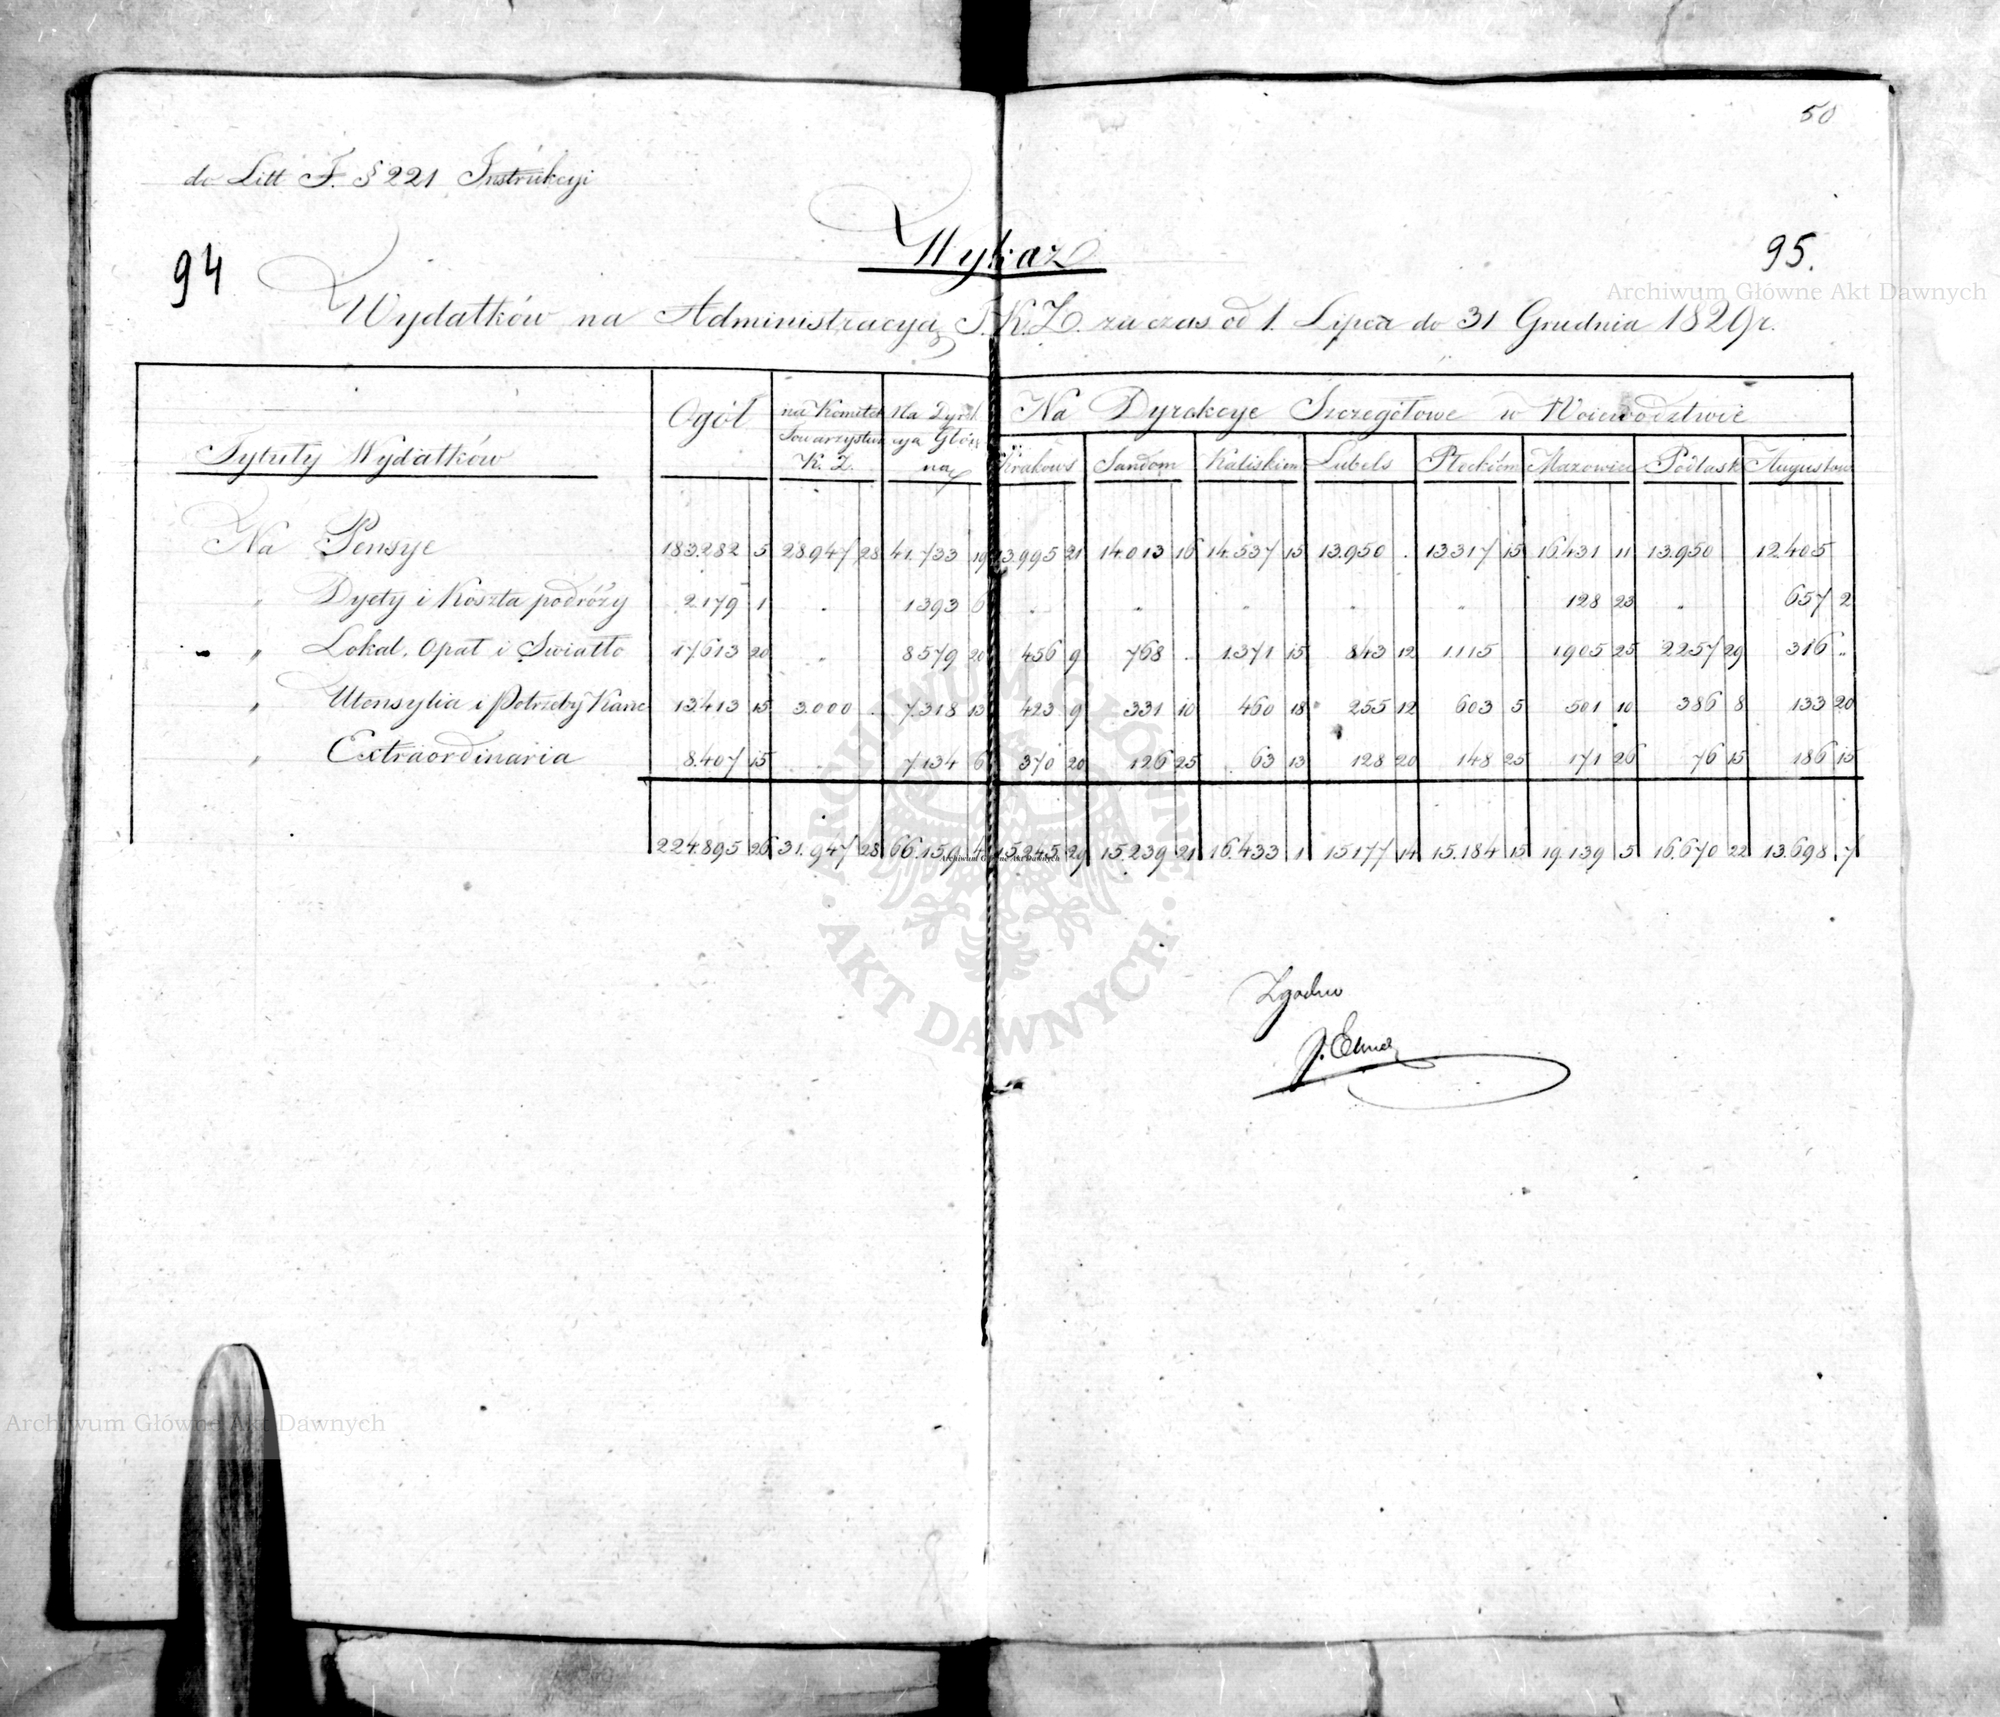 50
do Litt F. § 221 Instrukcyi
Wykaz
94
95.
Wydatków na Administracyą T.K.Z. za czas od 1. Lipca do 31 Grudnia 1829r.
Tytuły Wydatków | Ogół | na Komitet Towarzystwa K. Z. | Na Dyrekcya Główna | Na Dyrekcye Szczegółowe w Woiewodztwie
Krakows | Sandom | Kaliskiem | Lubels | Płockiem | Mazowiec | Podlask | Augustow
Na Pensye | 183.282 5 | 28947 28 | 41.733 19 | 13.995 21 | 14.013 16 | 14.537 15 | 13.950 . | 13317 15 | 16.431 11 | 13.950 | 12.405
" Dyety i Koszta podróży | 2.179 1 | . | 1393 6 | .. | .. | .. | .. | .. | 128 23 | .. | 657 2
" Lokal, Opał i Swiatło | 17.613 20 | .. | 8579 20 | 456 9 | 768 . | 1.371 15 | 843 12 | 1.115 | 1905 25 | 2257 29 | 316 ..
" Utensylia i Potrzeby Kanc | 13.413 15 | 3.000 . | 7.318 13 | 423 9 | 331 10 | 460 18 | 255 12 | 603 5 | 501 10 | 386 8 | 133 20
" Extraordinaria | 8.407 15 | . | 7134 6 | 370 20 | 126 25 | 63 13 | 128 20 | 148 25 | 171 26 | 76 15 | 186 15
224.895 26 | 31.947 28 | 66.159 4 | 15.245 29 | 15.239 21 | 16.433 1 | 15177 14 | 15.184 15 | 19.139 5 | 16.670 22 | 13.698 7
Zgodno
Archiwum Główne Akt Dawnych
Archiwum Główne Akt Dawnych
Archiwum Główne Akt Dawnych
ARCHIWUM GŁÓWNE · AKT DAWNYCH ·